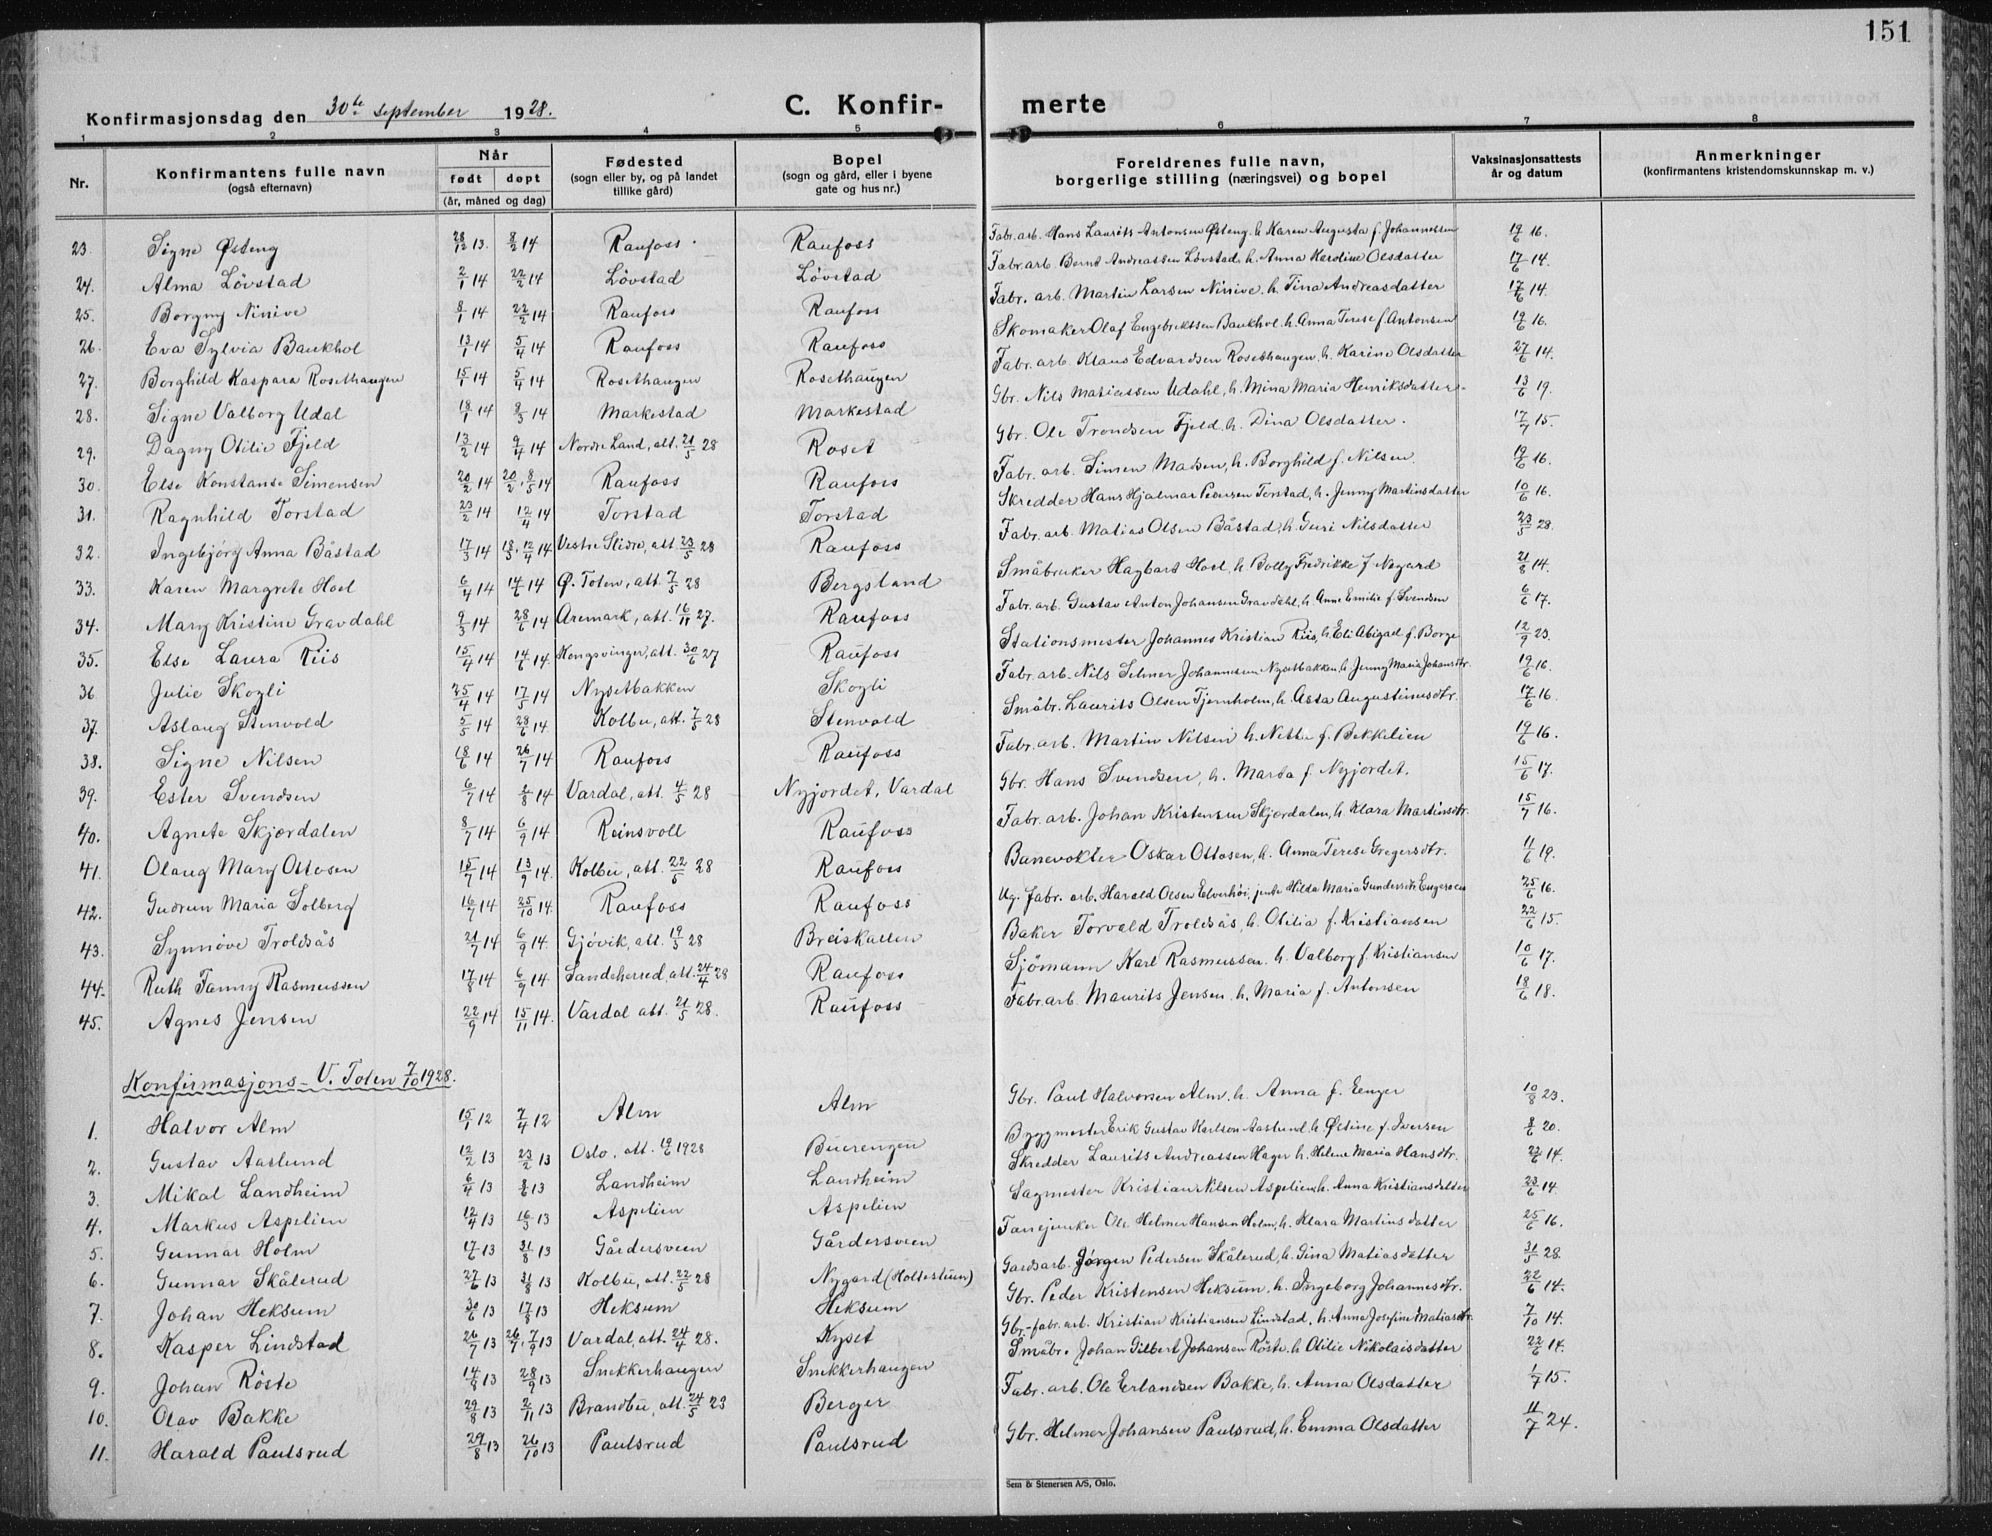 151
Konfirmasjonsdag den 30te september 1928.
C. Konfirmerte
1 2 3 4 5 6 7 8
Nr. Konfirmantens fulle navn (også efternavn) Når født døpt (år, måned og dag) Fødested (sogn eller by, og på landet tillike gård) Bopel (sogn og gård, eller i byene gate og hus nr.) Foreldrenes fulle navn, borgerlige stilling (næringsvei) og bopel Vaksinasjonsattests år og datum Anmerkninger (konfirmantens kristendomskunnskap m. v.)
23. Signe Østeng 28/12 13. 8/2 14 Raufoss. Raufoss Fabr. arb. Hans Laurits Antonsen Østeng, h. Karen Augusta f. Johannessen 19/6 16.
24. Alma Lövstad 2/1 14 22/2 14 Lövstad Lövstad Fabr. arb. Bernt Andreassen Lövstad, h. Anna Karoline Olsdatter 17/6 14.
25. Borgny Ninive 8/1 14 22/2 14 Raufoss Raufoss Fabr. arb. Martin Larsen Ninive, h. Tina Andreasdatter 17/6 14.
26. Eva Sylvia Baukhol 13/1 14 5/4 14 Raufoss Raufoss Skomaker Olaf Engebrektsen Baukhol h. Anna Terese f. Antonsen 19/6 16.
27. Borghild Kaspara Rosethaugen 15/1 14 5/4 14 Rosethaugen Rosethaugen Fabr. arb. Klaus Edvardsen Rosethaugen, h. Karine Olsdatter 27/6 14.
28. Signe Valborg Udal 18/1 14 8/3 14 Markestad Markestad Gbr. Nils Matiassen Udahl, h. Mina Maria Henriksdatter 13/6 19.
29. Dagny Otilie Fjeld 13/2 14 9/4 14 Nordre Land, att. 21/5 28 Roset Gbr. Ole Trondsen Fjeld, h. Dina Olsdatter. 17/7 15.
30. Else Konstanse Simensen 20/2 14 20/2, 8/5 14 Raufoss Raufoss Fabr. arb. Simen Madsen, h. Borghild f. Nilsen. 19/6 16.
31. Ragnhild Torstad 23/2 14 12/4 14 Torstad Torstad Skredder Hans Hjalmar Pedersen Torstad, h. Jenny Martinsdatter 10/6 16.
32. Ingebjörg Anna Båstad 17/3 14 18/3, 12/4 14 Vestre Slidre, att. 23/5 28 Raufoss Fabr. arb. Matias Olsen Båstad, h. Guri Nilsdatter 23/5 28.
33. Karen Margrete Hoel 6/4 14 14/6 14 Ø. Toten, att. 7/5 28 Bergsland Småbruker Hagbart Hoel, h. Bolly Fredrikke f. Nøgard 21/8 14.
34. Mary Kristine Gravdahl 9/3 14 28/6 14 Aremark, att. 16/11 27. Raufoss Fabr. arb. Gustav Anton Johansen Gravdahl, h. Anne Emilie f. Svendsen 6/6 17.
35. Else Laura Riis 15/4 14 14/6 14. Kongsvinger, att. 30/6 27 Raufoss Stationsmester Johannes Kristian Riis, h. Eli Abigael f. Borge 12/9 23.
36 Julie Skogli 25/4 14 17/5 14 Nysetbakken Skogli Fabr. arb. Nils Selmer Johannesen Nysetbakken, h. Jenny Maria Johansdtr. 19/6 16.
37. Aslaug Stenvold 5/5 14 28/6 14. Kolbu, att. 7/5 28 Stenvold Småbr. Laurits Olsen Tjernholm, h. Asta Augustinusdtr. 17/6 16.
38. Signe Nilsen 18/6 14 26/7 14 Raufoss Raufoss Fabr. arb. Martin Nilsen h. Nette f. Bekkelien 19/6 16.
39. Ester Svendsen 6/7 14 2/8 14 Vardal, att. 4/5 28 Nyjordet, Vardal Gbr. Hans Svendsen, h. Marta f. Nyjordet. 15/6 17.
40. Agnete Skjærdalen 8/7 14 6/9 14 Reinsvoll Raufoss Fabr. arb. Johan Kristensen Skjærdalen, h. Klara Martinsdtr. 15/7 16.
41. Olaug Mary Ottosen 15/7 14 13/9 14. Kolbu, att. 22/5 28 Raufoss Banevokter Oskar Ottosen, h. Anna Terese Gregersdtr. 11/6 19.
42. Gudrun Maria Solberg 16/7 14 25/10 14. Raufoss Raufoss Ug. fabr. arb. Harald Olsen Elverhöi, jente Hilda Maria Gundersdtr. 25/6 16.
43. Synnöve Troldsås 21/7 14 6/9 14. Gjövik, att. 19/5 28 Breiskallen Baker Torvald Troldsås, h. Otilia f. Kristiansen 22/6 15.
44. Ruth Fanny Rasmussen 17/8 14 6/9 14. Sandeherred, att. 24/4 28 Raufoss Sjömann Karl Rasmussen h. Valborg f. Kristiansen 10/6 17.
45. Agnes Jensen 22/9 14 15/11 14. Vardal att. 21/5 28. Raufoss Fabr. arb. Maurits Jensen, h. Maria f. Antonsen 18/6 18.
Konfirmasjons - V. Toten 7/10 1928.
1. Halvor Alm 15/1 12 7/4 12 Alm Alm Gbr. Paul Halvorsen Alm, h. Anna f. Eenger 10/8 23.
2. Gustav Aaslund 12/2 13 23/2 13 Oslo, att. 19/6 1928 Buerengen Byggmester Erik Gustav Karlson Aaslund, h. Östine f. Iversen 8/6 20.
3. Mikal Landheim 6/4 13 8/6 13 Landheim Landheim Skredder Laurits Andreassen Hager h. Helene Maria Hansdtr. 23/6 14.
4. Markus Aspelien 12/4 13 16/3 13 Aspelien Aspelien Sagmester Kristian Nilsen Aspelien, h. Anna Kristiansdatter 23/6 14.
5. Gunnar Holm 17/6 13 31/8 13 Gårdersveen Gårdersveen Ole Helmer Hansen Holm, h. Klara Martinsdatter 25/6 16.
6. Gunnar Skålerud 27/6 13 31/8 13 Kolbu, att. 22/5 28 Nygard (Hollestuen) Gardsarb. Jörgen Pedersen Skålerud, h. Gina Matiasdatter 31/5 28
7. Johan Heksum 30/6 13 17/8 13 Heksum Heksum Gbr. Peder Kristensen Heksum, h. Ingeborg Johannesdtr. 22/6 14.
8. Kasper Lindstad 26/7 13 26/7, 7/9 13 Vardal, att. 24/4 28. Kyset Gbr.-fabr. arb. Kristian Kristiansen Lindstad, h. Anna Josefine Matiasdtr. 7/10 14.
9. Johan Röste 14/8 13 28/9 13 Snekkerhaugen Snekkerhaugen Småbr. Johan Gilbert Johansen Röste, h. Otilie Nikolaisdatter 22/6 14.
10. Olav Bakke 29/8 13 2/11 13 Brandbu, att. 24/5 23 Berger Fabr. arb. Ole Erlandsen Bakke, h. Anna Olsdatter 1/7 15.
11. Harald Paulsrud 29/8 13 26/10 13 Paulsrud Paulsrud Gbr. Helmer Johansen Paulsrud, h. Emma Olsdatter 11/7 24.
Sem & Stenersen A/S, Oslo.